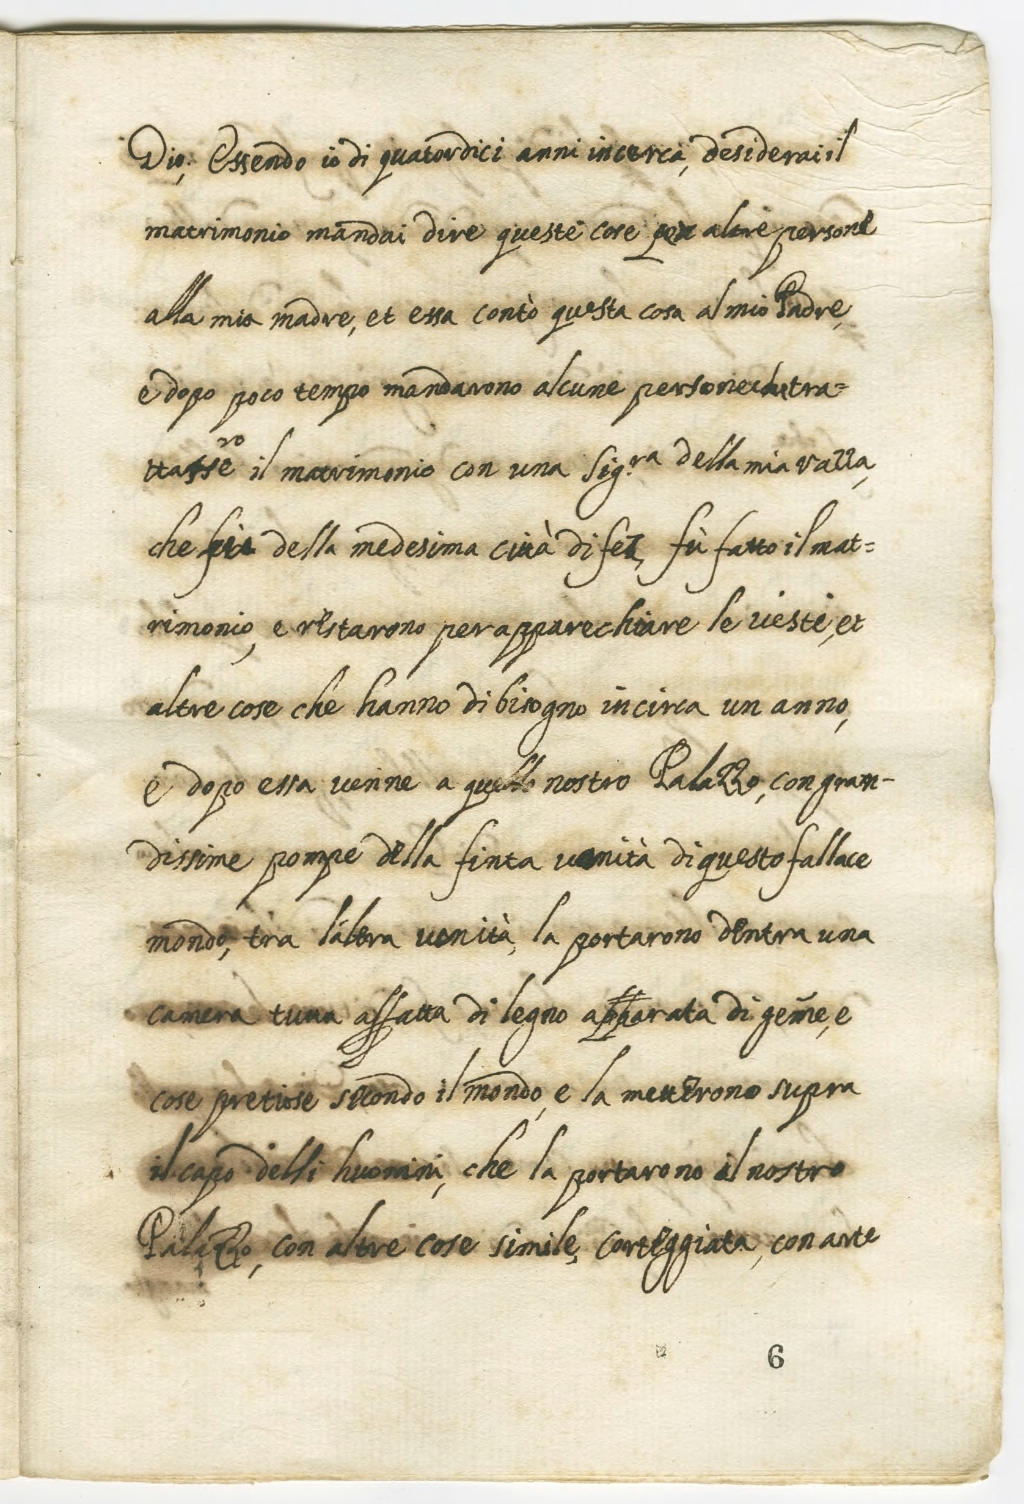 Dio; Essendo io di quatordici anni incerca, desiderai il
matrimonio mandai dire queste cose per altre persone
alla mia madre, et essa contò questa cosa al mio Padre,
e dopo poco tempo mandarono alcune persone che tra=
ttassero il matrimonio con una Sig.ra della mia razza,
che fù della medesima città di fez, fù fatto il mat=
rimonio, e restarono per apparechiare le vieste, et
altre cose che hanno di bisogno incirca un anno,
e dopo essa venne a quello nostro Palazzo, con gran-
dissime pompe della finta vanità di questo fallace
mondo, tra l'altra vanità, la portarono dentra una
camera tutta affatta di legno apparata di gem̃e, e
cose pretiose secondo il mondo, e la metterono supra
il capo delli huomini, che la portarono al nostro
Palazzo, con altre cose simile, corteggiata, con arte
6